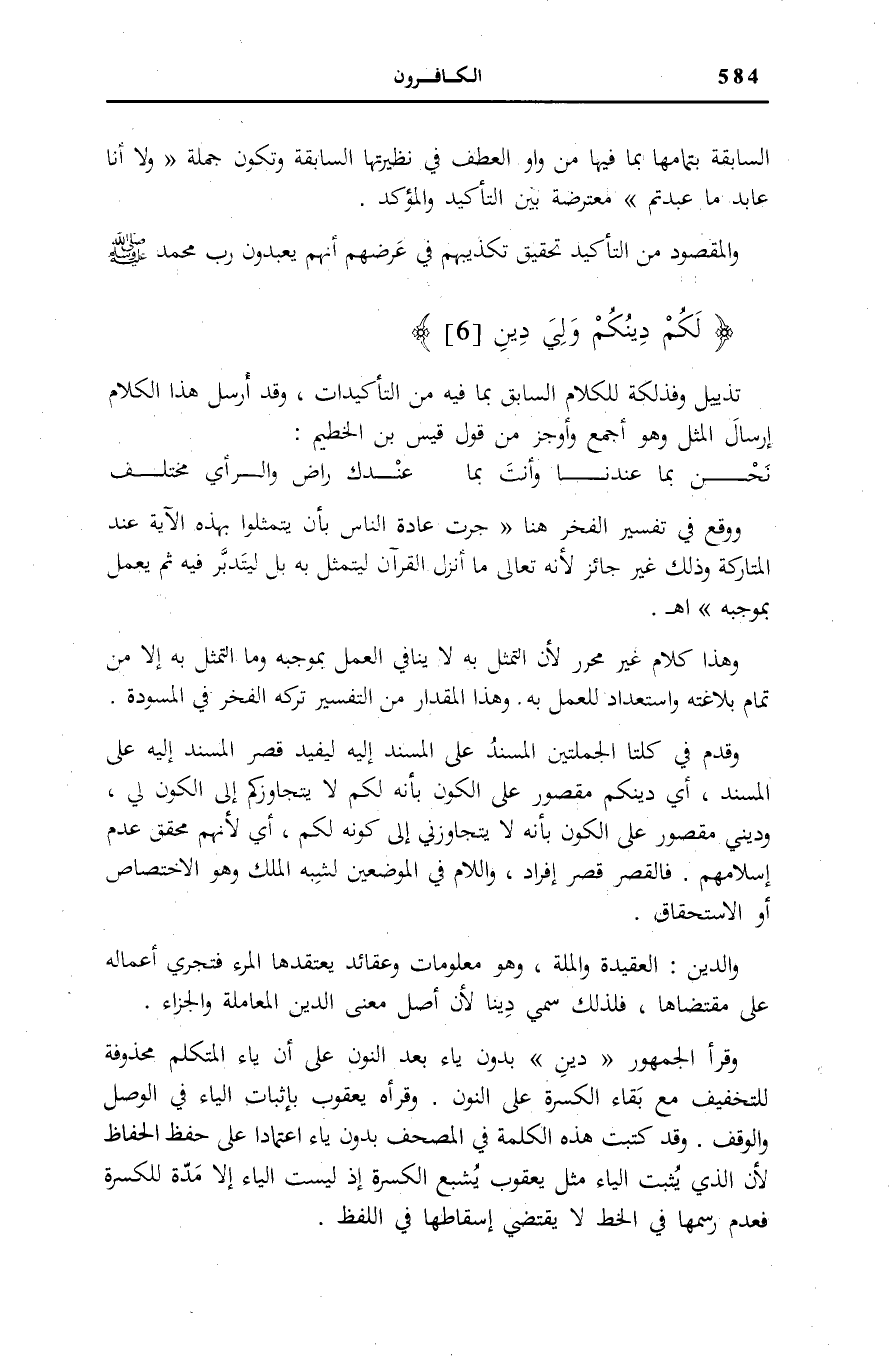 584 الكافرون
السابقة بتمامها بما فيها من واو العطف في نظيرتها السابقة وتكون جملة « ولا أنا
عابد ما عبدتم » معترضة بين التأكيد والمؤكد .
والمقصود من التأكيد تحقيق تكذيبهم في عَرضهم أنهم يعبدون رب محمد ﷺ
﴿ لَكُمْ دِينُكُمْ وَلِيَ دِينِ [6] ﴾
تذييل وفذلكة للكلام السابق بما فيه من التأكيدات ، وقد أُرسل هذا الكلام
إرسالَ المثل وهو أجمع وأوجز من قول قيس بن الخطيم :
نَحْـــن بما عندنـــا وأنتَ بما عنْـدك راض والـرأي مختلـف
ووقع في تفسير الفخر هنا « جرت عادة الناس بأن يتمثلوا بهذه الآية عند
المتاركة وذلك غير جائز لأنه تعالى ما أنزل القرآن ليتمثل به بل ليتَدبَّر فيه ثم يعمل
بموجبه » اهـ .
وهذا كلام غير محرر لأن التمثل به لا ينافي العمل بموجبه وما التمثل به إلا من
تمام بلاغته واستعداد للعمل به . وهذا المقدار من التفسير تركه الفخر في المسودة .
وقدم في كلتا الجملتين المسندُ على المسند إليه ليفيد قصر المسند إليه على
المسند ، أي دينكم مقصور على الكون بأنه لكم لا يتجاوزكم إلى الكون لي ،
وديني مقصور على الكون بأنه لا يتجاوزني إلى كونه لكم ، أي لأنهم محقق عدم
إسلامهم . فالقصر قصر إفراد ، واللام في الموضعين لشِبه الملك وهو الاختصاص
أو الاستحقاق .
والدين : العقيدة والملة ، وهو معلومات وعقائد يعتقدها المرء فتجري أعماله
على مقتضاها ، فلذلك سمي دِينا لأن أصل معنى الدين المعاملة والجزاء .
وقرأ الجمهور « دينِ » بدون ياء بعد النون على أن ياء المتكلم محذوفة
للتخفيف مع بَقاء الكسرة على النون . وقرأه يعقوب بإثبات الياء في الوصل
والوقف . وقد كتبت هذه الكلمة في المصحف بدون ياء اعتمادا على حفظ الحفاظ
لأن الذي يُثبت الياء مثل يعقوب يُشبع الكسرة إذ ليست الياء إلا مَدّة للكسرة
فعدم رسمها في الخط لا يقتضي إسقاطها في اللفظ .